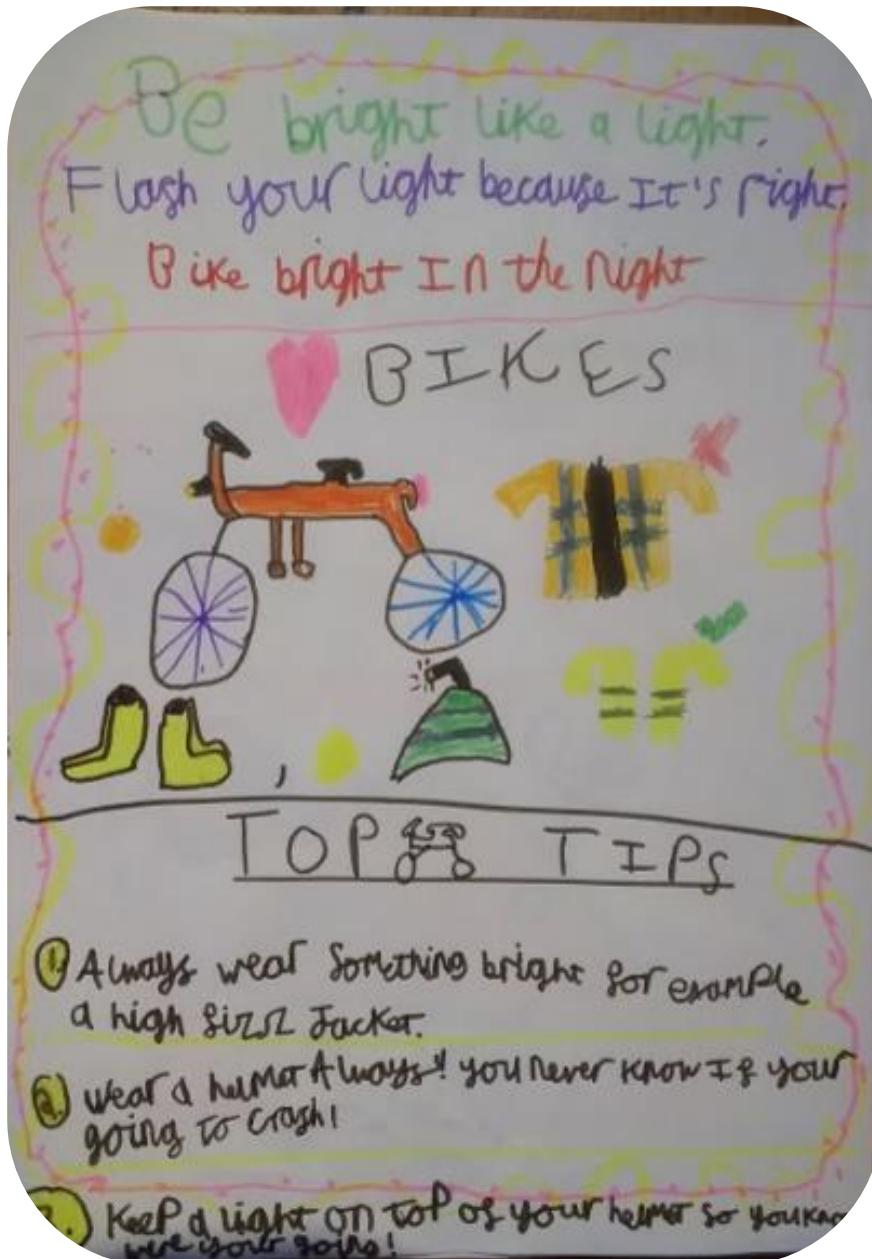 Be bright like a light.
Flash your light because It's right.
Bike bright In the night
BIKES
TOP TIPS
1. Always wear Something bright for example
a high fizz Jacket.
2. wear a helmet Always! you never know If your
going to crash!
3. Keep a light on top of your helmet so you know
were your going!